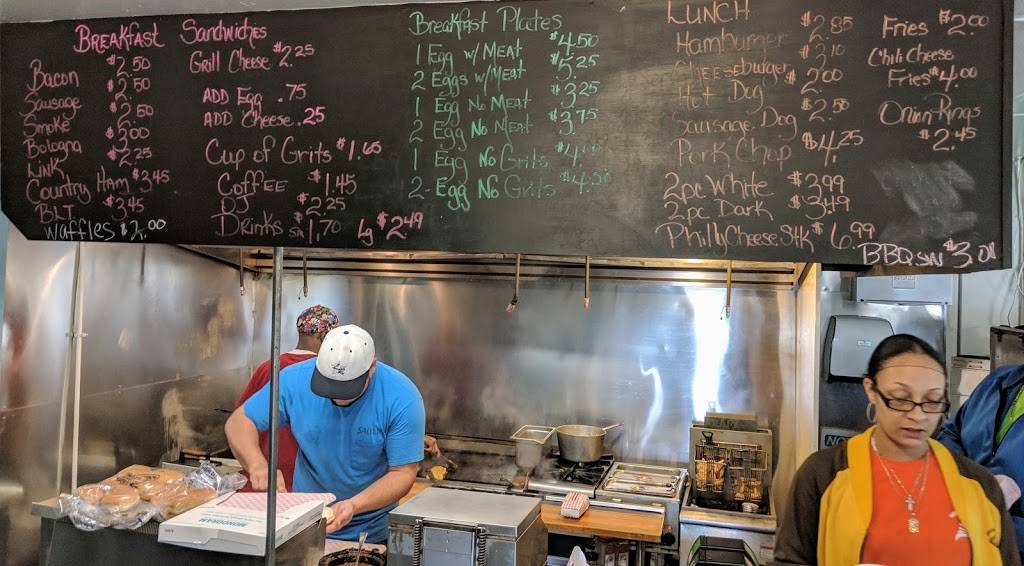 BREAKFAST Sandwiches
Bacon $2.50
Sausage $2.50
Smoke $2.50
Bologna $3.00
Link $2.25
Country Ham $3.45
BLT $3.45
Waffles $2.00
Grill Cheese $2.25
ADD Egg .75
ADD Cheese .25
Cup of Grits $1.65
Coffee $1.45
Drinks sm $2.25 1.70 Lg $2.49
Breakfast Plates
1 Egg w/ Meat $4.50
2 Eggs w/ Meat 5.25
1 Egg No Meat $3.25
2 Egg No Meat $3.75
1 Egg No Grits
2 - Egg No Grits
LUNCH
Hamburger $2.85
Cheeseburger $3.10
Hot Dog $2.00
Sausage Dog $2.50
Pork Chop $4.25
2pc White $3.99
2pc Dark $3.49
Philly Cheese Stk $6.99
Fries $2.00
Chili Cheese
Fries $4.00
Onion Rings
$2.45
BBQ SW $3.01